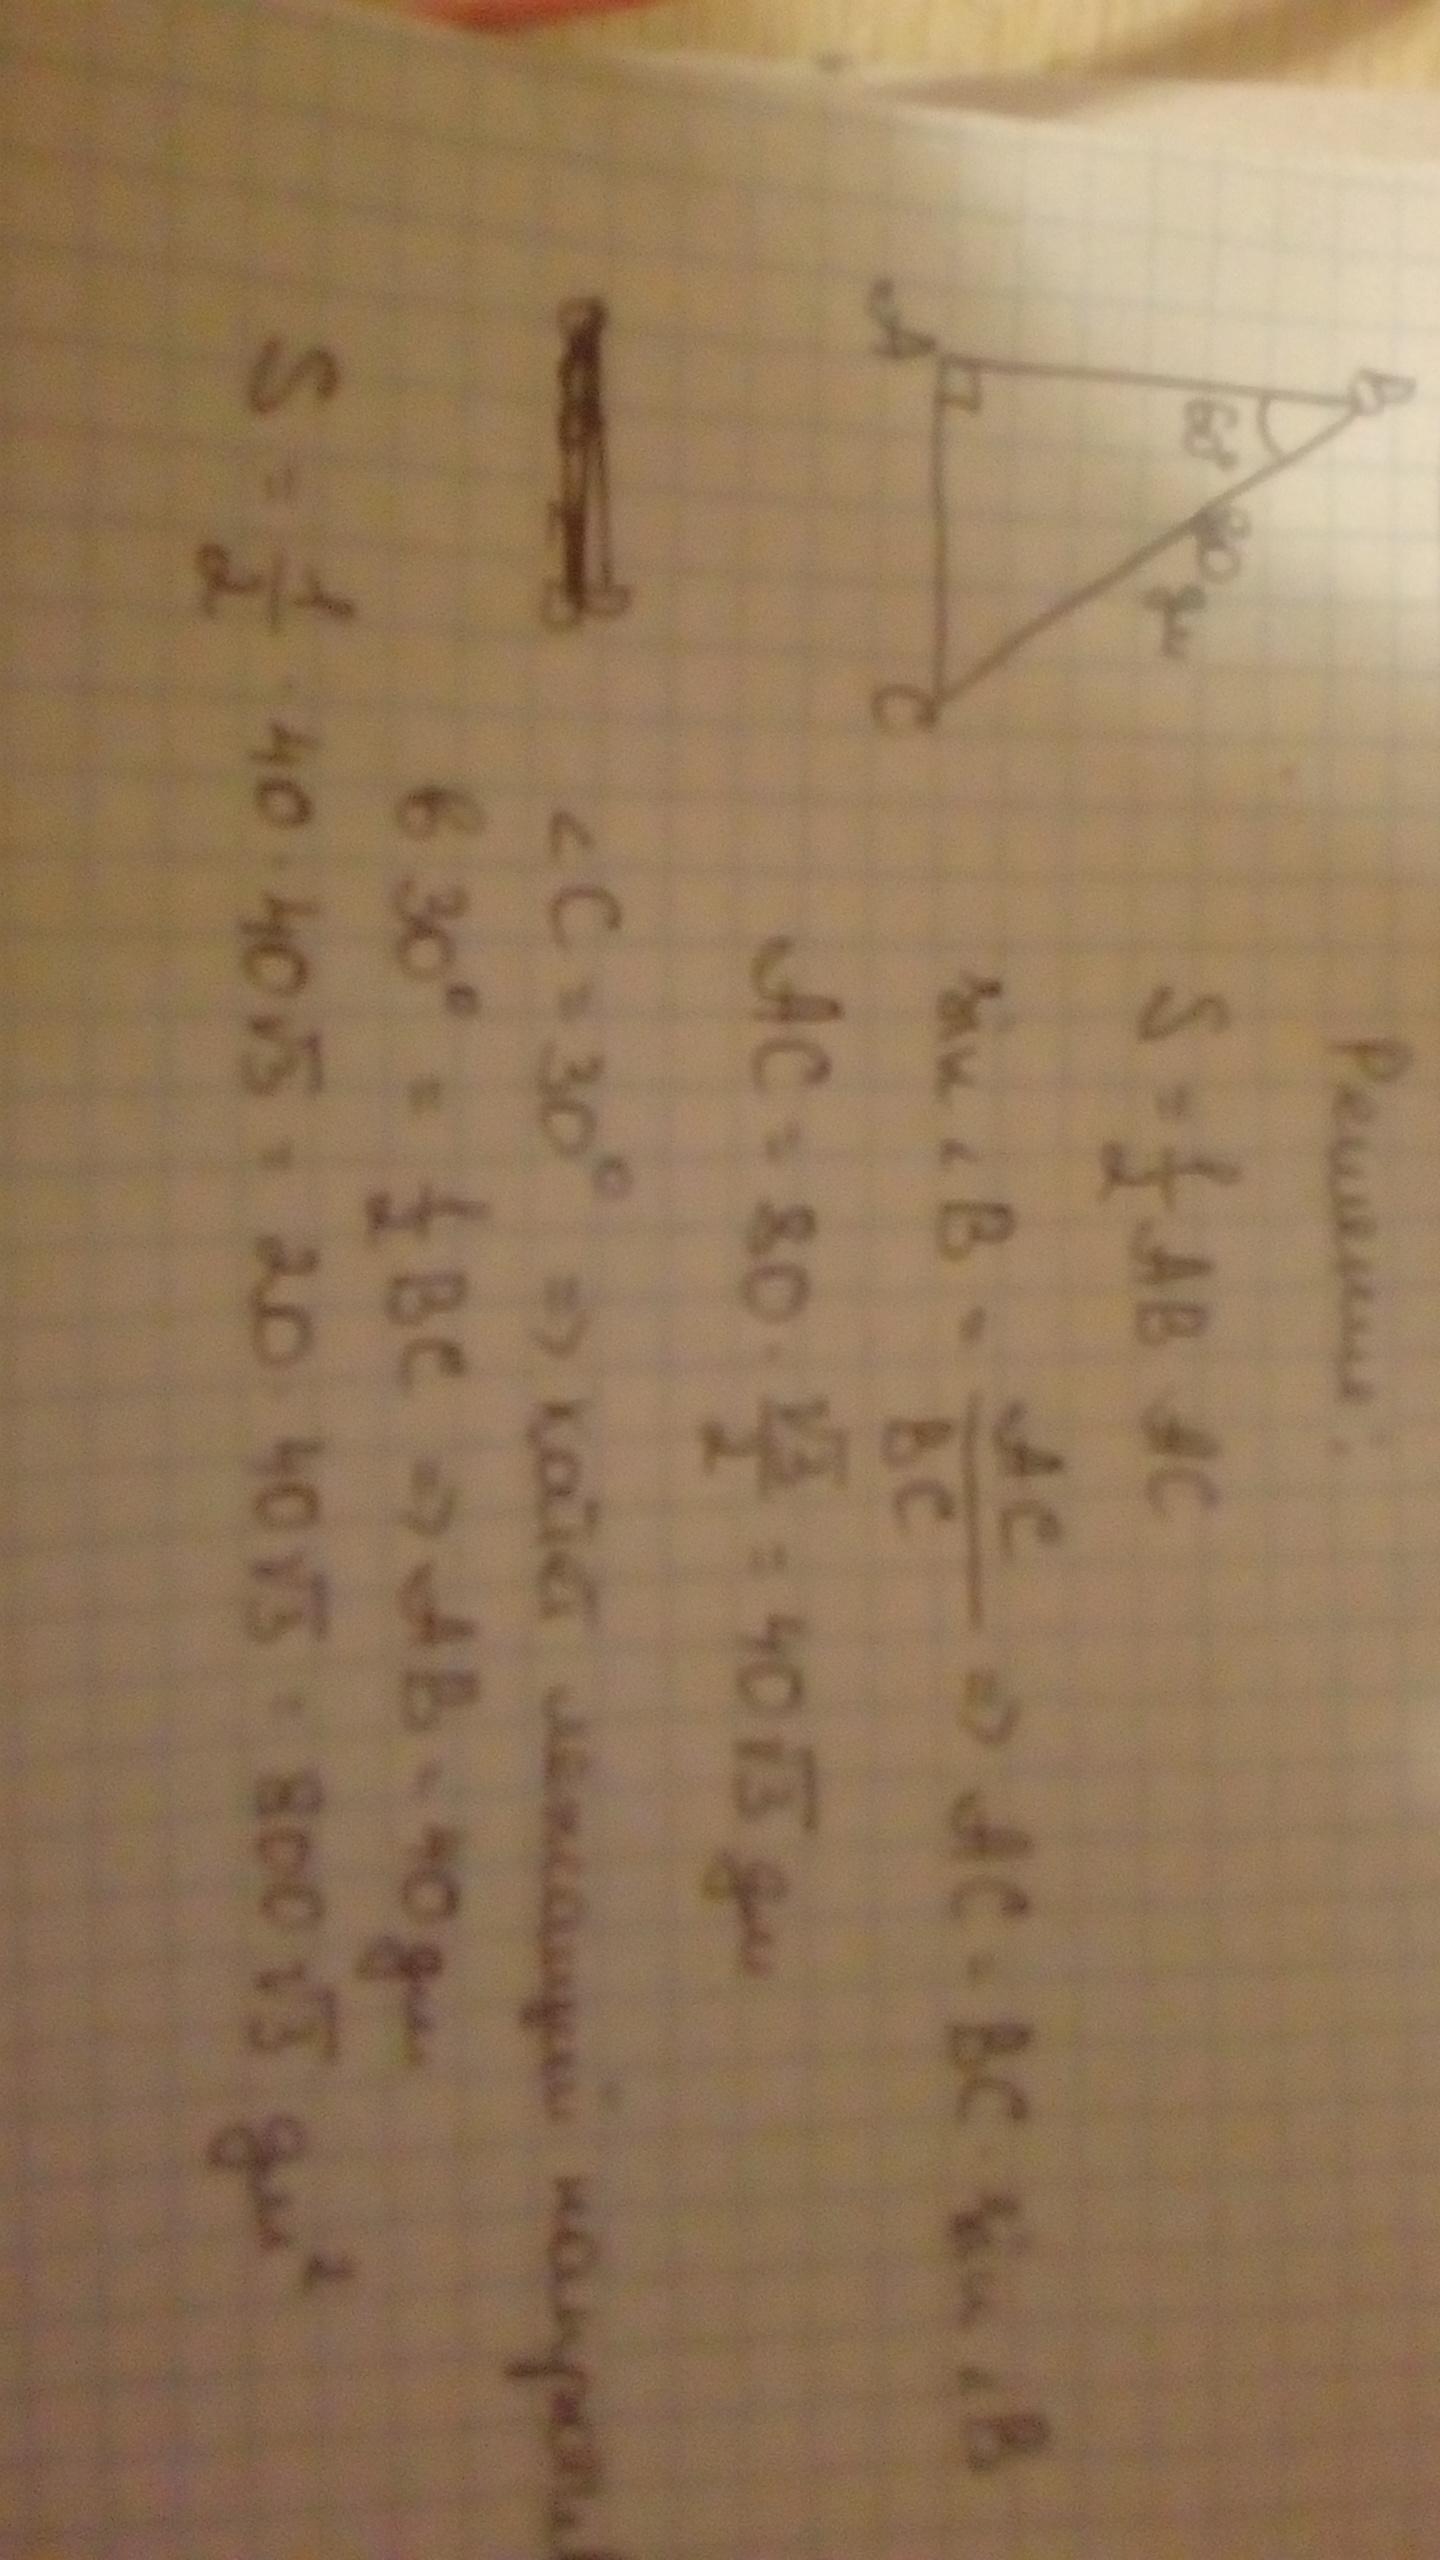 B
60°
80 дм
A
C
Решение:
S = 1/2 AB AC
sin ∠B = AC/BC => AC = BC sin ∠B
AC = 80 · √3/2 = 40√3 дм
∠C = 30° => катет лежащий напротив
в 30° = 1/2 BC => AB = 40 дм
S = 1/2 · 40 · 40√3 = 20 · 40√3 = 800√3 дм²